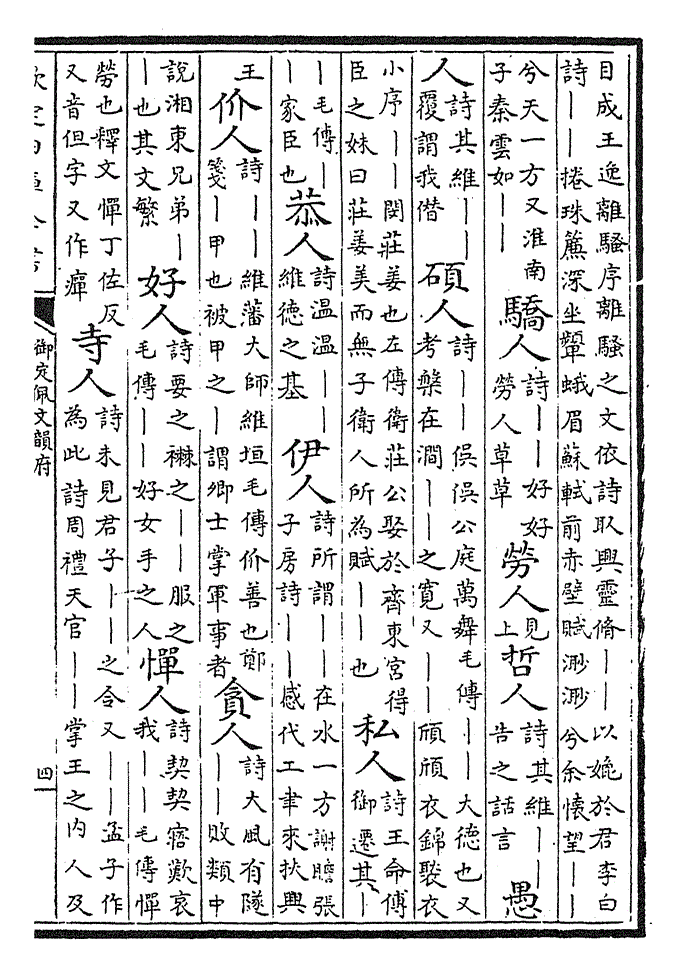 目成王逸離騷序離騷之文依詩取興靈脩——以媲於君李白詩——捲珠簾深坐顰蛾眉蘇軾前赤壁賦渺渺兮余懷望——
兮天一方又淮南子秦雲如——驕人詩——好好勞人草草勞人見上哲人詩其維——告之話言愚
人詩其維——覆謂我僭碩人詩——俁俁公庭萬舞毛傳——大德也又考槃在澗——之寛又——頎頎衣錦褧衣
小序——閔莊姜也左傳衛莊公娶於齊東宮得臣之妹曰莊姜美而無子衛人所為賦——也私人詩王命傅御遷其——
——毛傳——家臣也恭人詩温温——維德之基伊人詩所謂——在水一方謝瞻張子房詩——感代工聿來扶興
王价人詩——維藩大師維垣毛傳价善也鄭箋——甲也被甲之——謂卿士掌軍事者貪人詩大風有隧——敗類中
説湘東兄弟——也其文繁好人詩要之襋之——服之毛傳——好女手之人憚人詩契契寤歎哀我——毛傳憚
勞也釋文憚丁佐反又音但字又作癉寺人詩未見君子——之令又——孟子作為此詩周禮天官——掌王之内人及
欽定四庫全書
御定佩文韻府
四